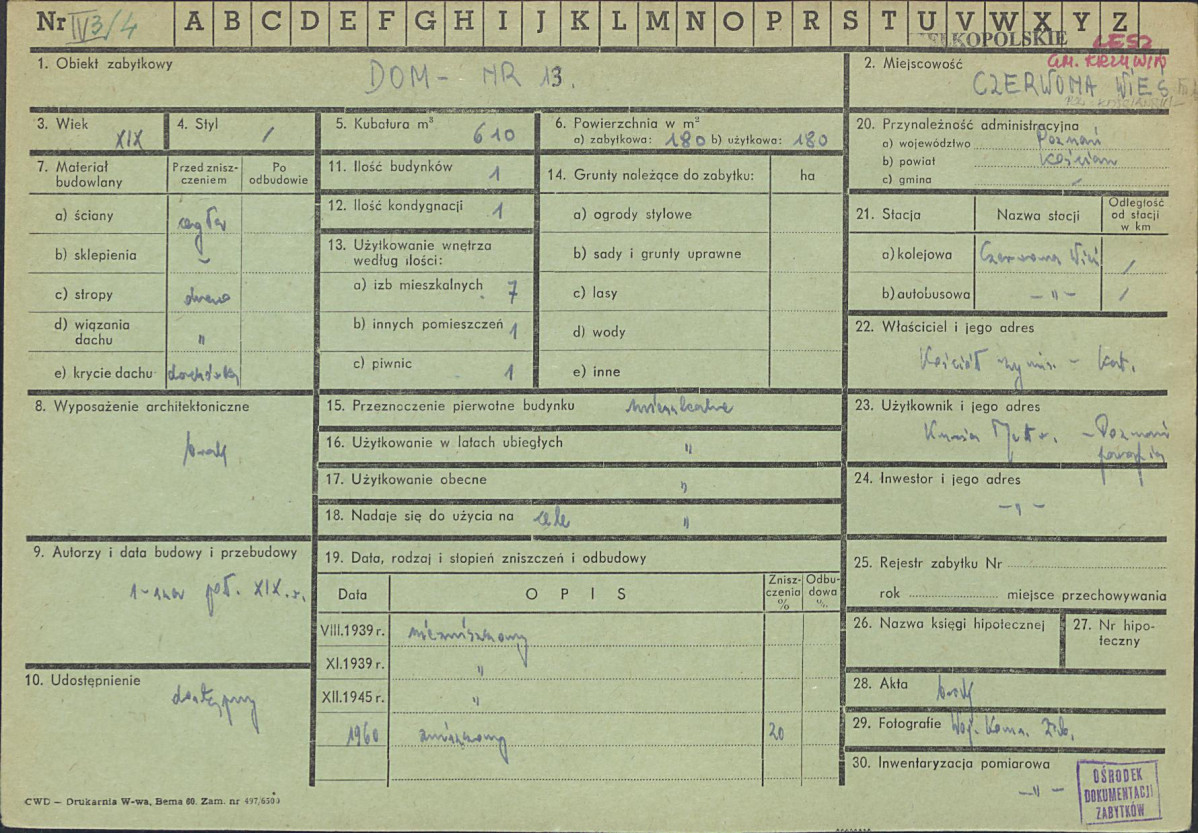 Nr IV3/4 A B C D E F G H I J K L M N O P R S T U V W X Y Z
WIELKOPOLSKIE LESZ
1. Obiekt zabytkowy
DOM - NR 13.
2. Miejscowość GM. KRZYWIŃ
CZERWONA WIEŚ
3. Wiek XIX
4. Styl /
5. Kubatura m³ 610
6. Powierzchnia w m²
a) zabytkowa: 180 b) użytkowa: 180
7. Materiał budowlany
Przed znisz-
czeniem
Po
odbudowie
a) ściany cegła
b) sklepienia -
c) stropy drewno
d) wiązania
dachu "
e) krycie dachu dachówka
8. Wyposażenie architektoniczne
brak
9. Autorzy i data budowy i przebudowy
1-sza poł. XIX.w.
10. Udostępnienie
dostępny
11. Ilość budynków 1
12. Ilość kondygnacji 1
13. Użytkowanie wnętrza
według ilości:
a) izb mieszkalnych 7
b) innych pomieszczeń 1
c) piwnic 1
14. Grunty należące do zabytku: ha
a) ogrody stylowe
b) sady i grunty uprawne
c) lasy
d) wody
e) inne
15. Przeznoczenie pierwotne budynku mieszkalne
16. Użytkowanie w latach ubiegłych "
17. Użytkowanie obecne "
18. Nadaje się do użycia na cele "
19. Data, rodzaj i stopień zniszczeń i odbudowy
Data
OPIS
Znisz-
czenia
%
Odbu-
dowa
%
VIII.1939 r. niezniszczony
XI.1939 r. "
XII.1945 r. "
1960 zniszczony 20
20. Przynależność administracyjna
a) województwo Poznań
b) powiat Kościan
c) gmina /
21. Stacja
Nazwa stacji
Odległość
od stacji
w km
a) kolejowa Czerwona Wieś /
b) autobusowa - " - /
22. Właściciel i jego adres
Kościół rzyms. - kat.
23. Użytkownik i jego adres
Kuria - Poznań
parafia
24. Inwestor i jego adres
- " -
25. Rejestr zabytku Nr
rok miejsce przechowywania
26. Nazwa księgi hipotecznej
27. Nr hipo-
teczny
28. Akta brak
29. Fotografie Woj. Kons. Zab.
30. Inwentaryzacja pomiarowa
- " -
OŚRODEK
DOKUMENTACJI
ZABYTKÓW
CWD — Drukarnia W-wa, Bema 60. Zam. nr 497/6500